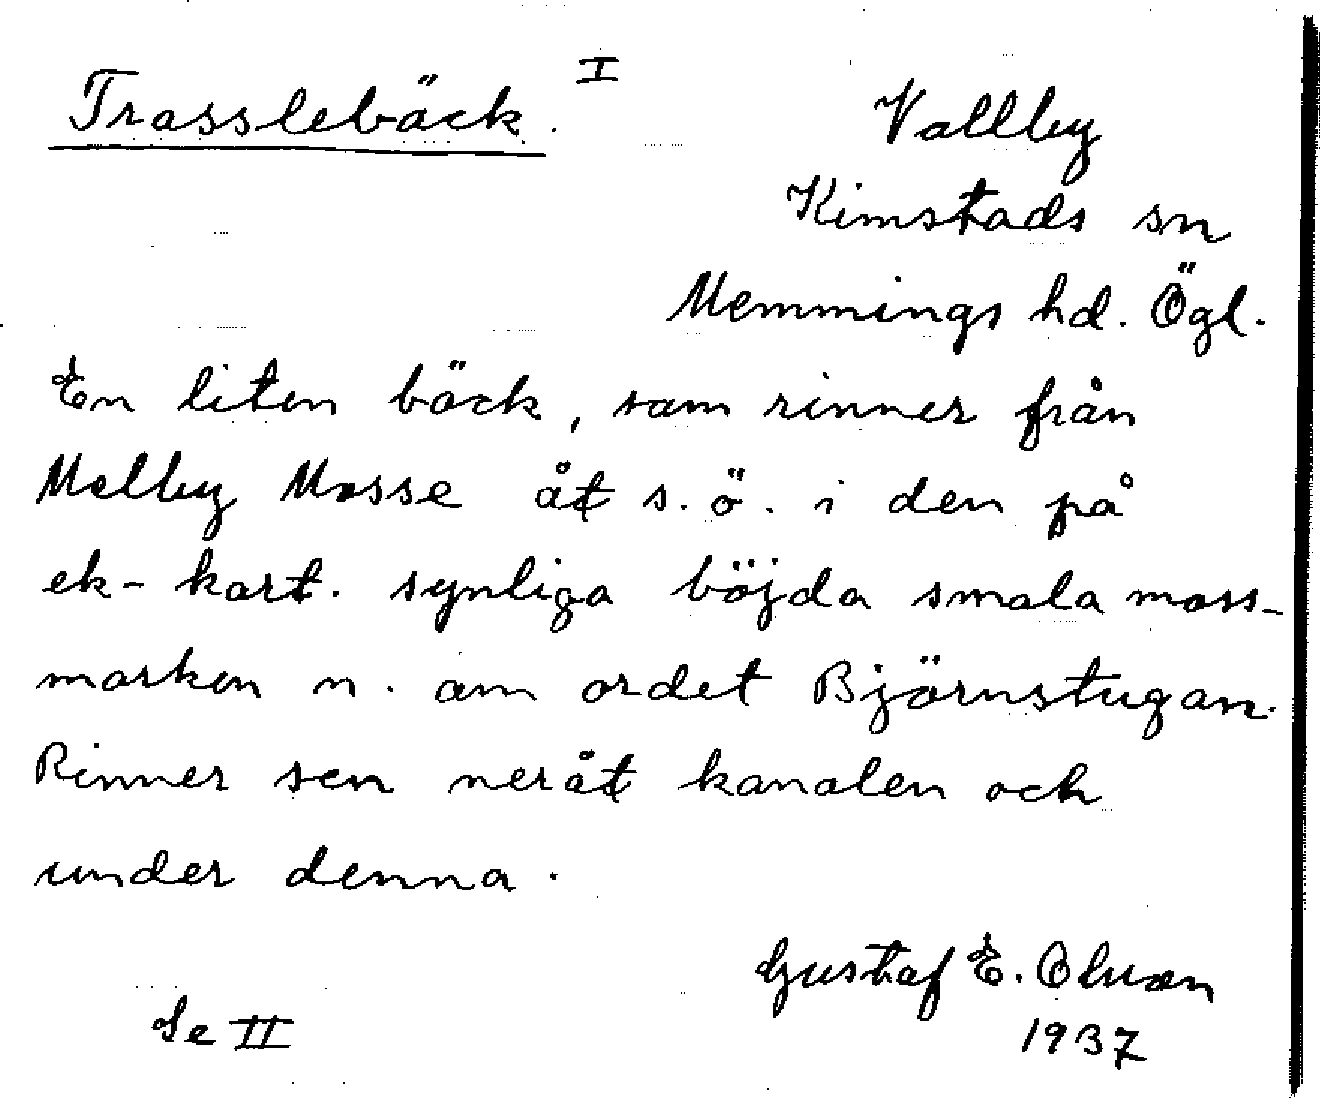 Trasslebäck. I
Vallby
Kimstads sn
Memmings hd. Ögl.
En liten bäck, som rinner från
Melby Mosse åt s.ö. i den på
ek-kart. synliga böjda smala moss-
marken n. om ordet Björnstugan.
Rinner sen neråt kanalen och
under denna.
Gustaf E.
1937
Se II